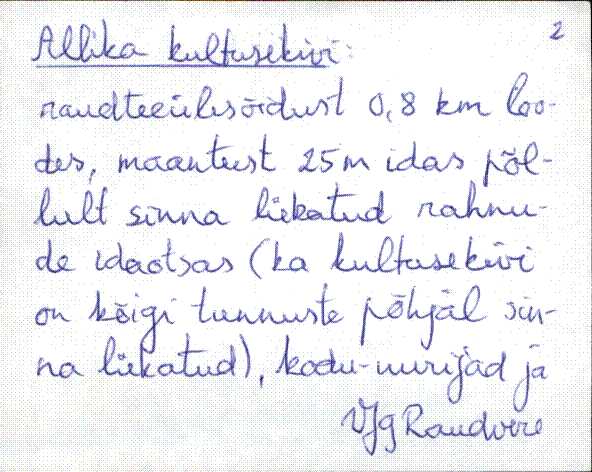 2
Allika kultusekivi:
raudteeülesõidust 0,8 km loo-
des, maanteest 25 m idas põl-
lult sinna lükatud rahnu-
de idaotsas (ka kultusekivi
on kõigi tunnuste põhjal sin-
na lükatud), kodu-uurijad ja
VJg Raudvere